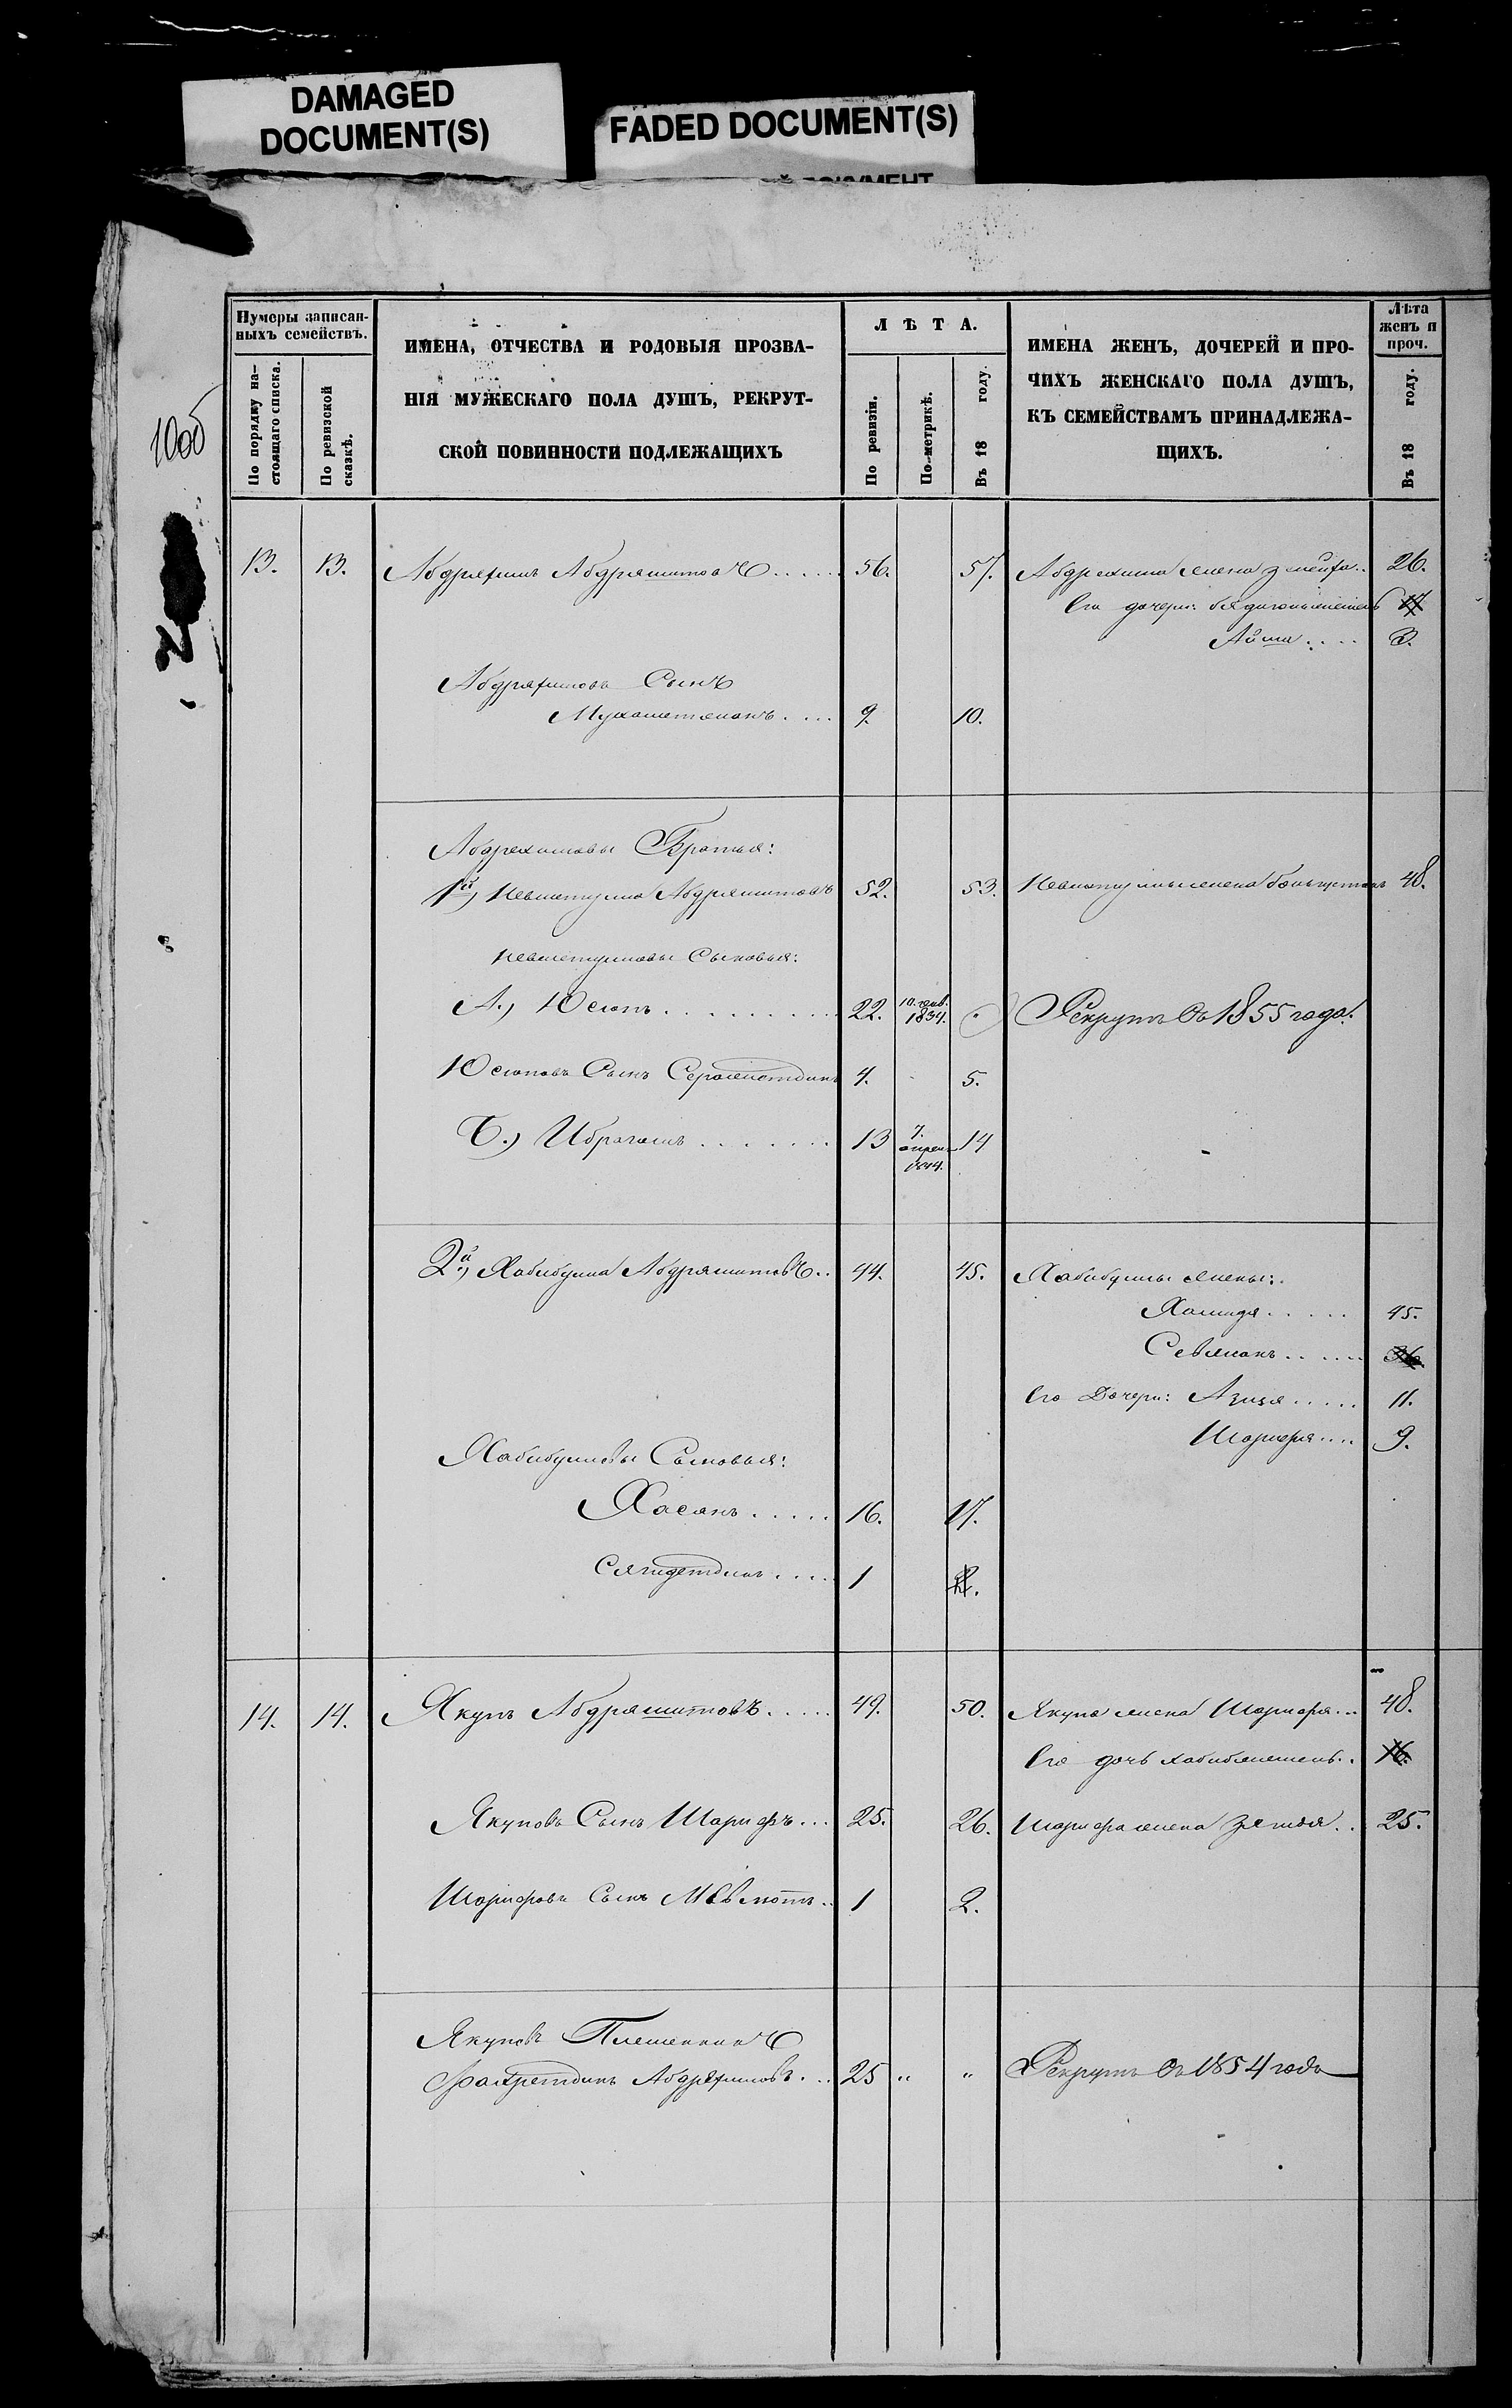 DAMAGED
DOCUMENT(S)
FADED DOCUMENT(S)
Нумеры записан-
ныхъ семействъ.
По порядку на-
стоящаго списка.
По ревизской
сказкѣ.
ИМЕНА, ОТЧЕСТВА И РОДОВЫЯ ПРОЗВА-
НІЯ МУЖЕСКАГО ПОЛА ДУШЪ, РЕКРУТ-
СКОЙ ПОВИННОСТИ ПОДЛЕЖАЩИХЪ
ЛѢТА.
По ревизіи.
По метрикѣ.
Въ 18 году.
ИМЕНА ЖЕНЪ, ДОЧЕРЕЙ И ПРО-
ЧИХЪ ЖЕНСКАГО ПОЛА ДУШЪ,
КЪ СЕМЕЙСТВАМЪ ПРИНАДЛЕЖА-
ЩИХЪ.
Лѣта
женъ и
проч.
Въ 18 году.
13. 13. Абдряхимъ Абдряшитовъ 56. 57. Абдрехима жена Зюлейфа 26.
Его дочери: 17
Айша 3.
Абдряхимовъ Сынъ
Мухаметжанъ 9. 10.
Абдрехимовы Братья:
1й) Невметулла Абдряшитовъ 52. 53. Невметуллы жена 48.
Невметулловы Сыновья:
А.) Юсюпъ 22. 10. янв. 1834. Рекрутъ съ 1855 года.
Юсюповъ Сынъ 4. 5.
Б.) Ибрагимъ 13 7. апреля 14
2й) Хабибулла Абдряшитовъ 44. 45. Хабибуллы жены:
Халидя 45.
Севжанъ 36.
Его Дочери: Азизя 11.
Шарифя 9.
Хабибулловы Сыновья:
Хасянъ 16. 17.
Сяпидетдинъ 1 2.
14. 14. Якупъ Абдряшитовъ 49. 50. Якупа жена Шарифя 48.
Его дочь Хабибжамень 16.
Якуповъ Сынъ Шарифъ 25. 26. Шарифа жена 25.
Шарифовъ Сынъ 1 2.
Якуповъ Племянникъ
Фахретдинъ Абдряхимовъ 25 " " Рекрутъ съ 1854 года